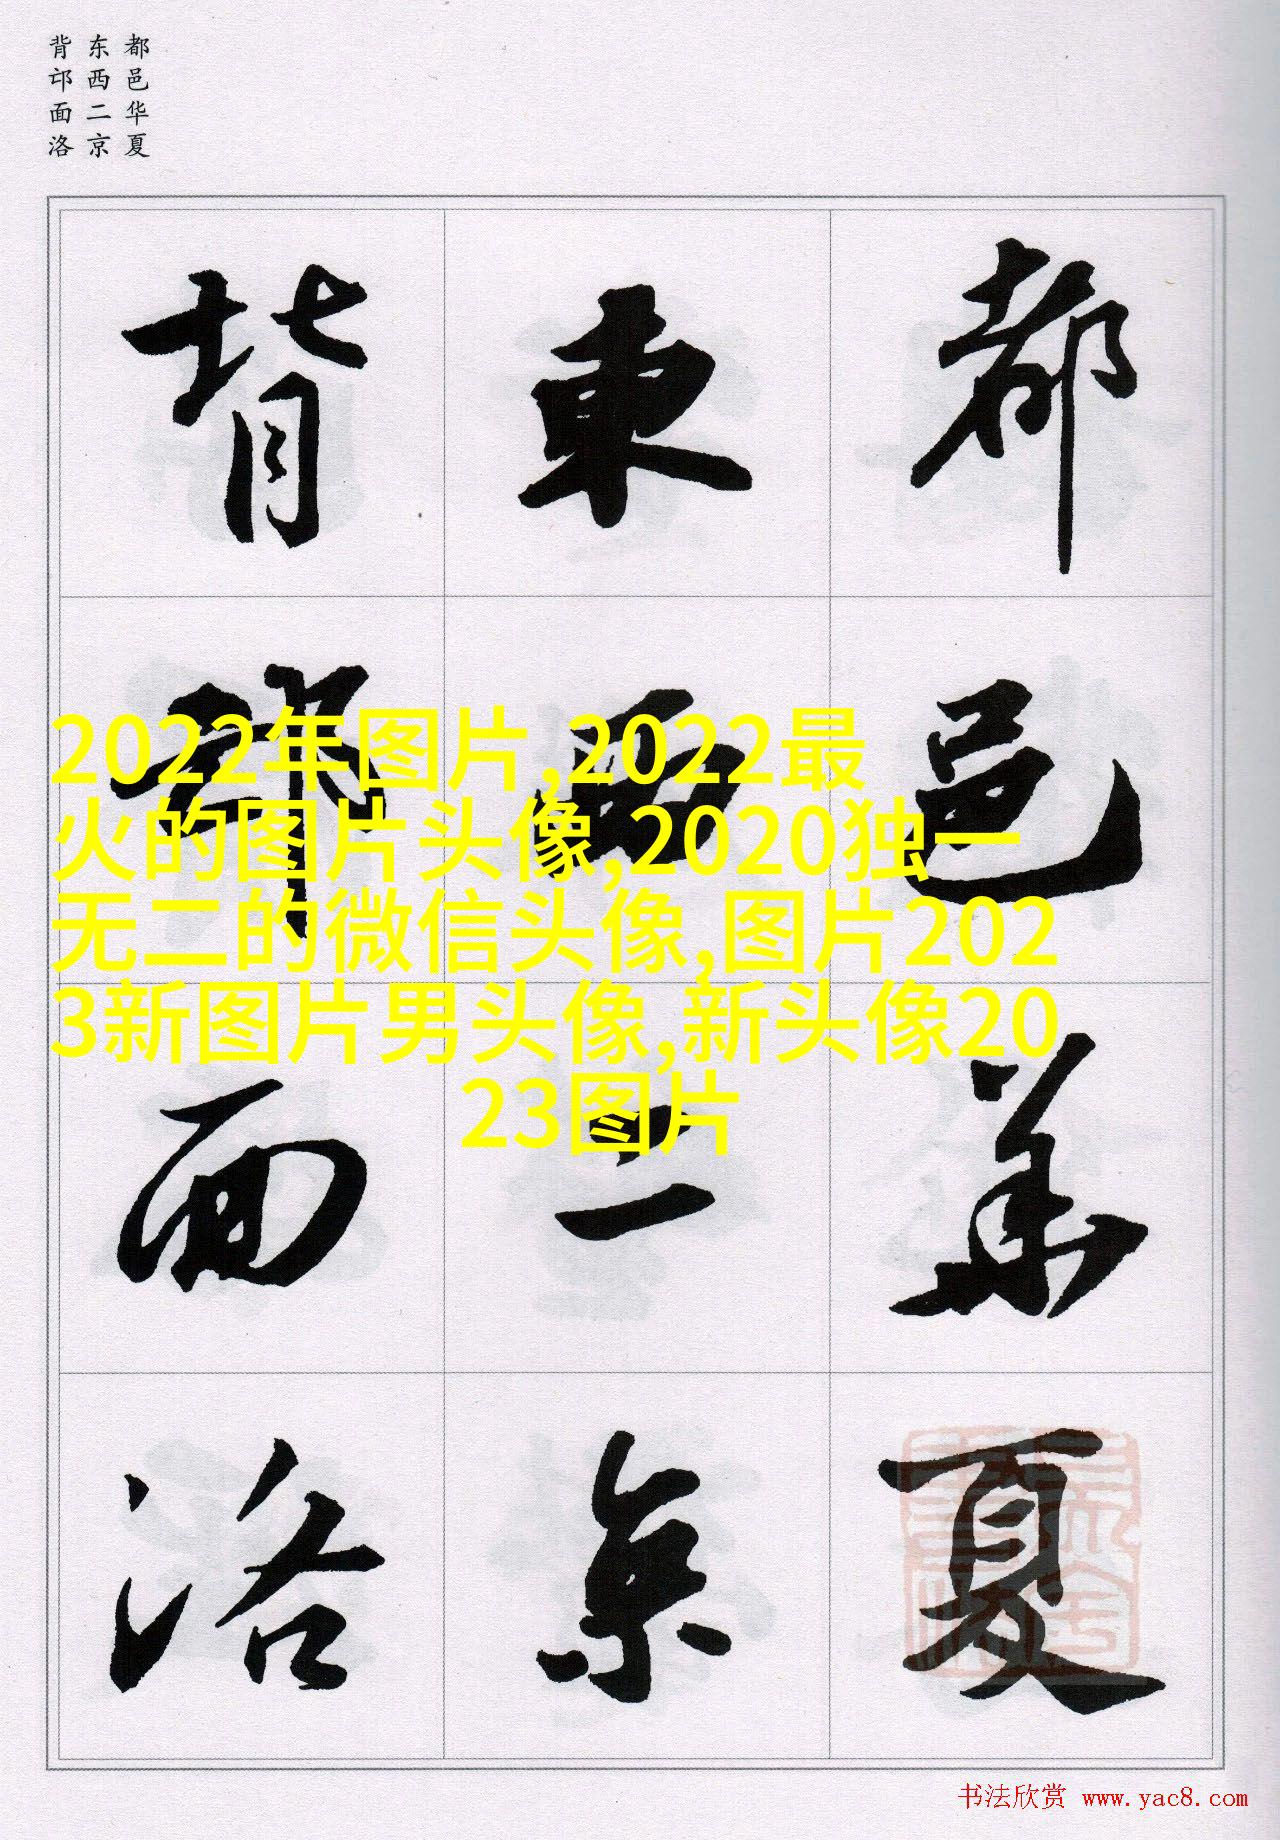 都邑华夏
东西二京
背邙面洛
都邑華夏
東西二京
背邙面洛
2022年图片,2022最
火的图片头像,2020独一
无二的微信头像,图片202
3新图片男头像,新头像20
23图片
书法欣赏 www.yac8.com